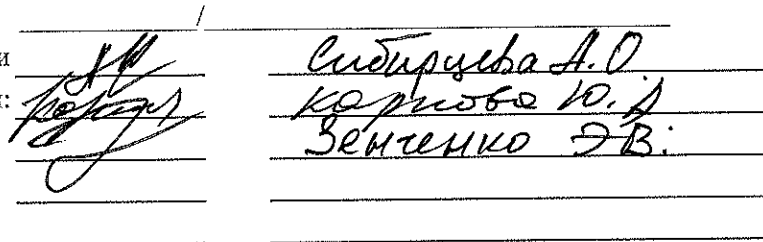 /
и Сибирцева А.О
: Карпова Ю.А
Зенченко Э.В.